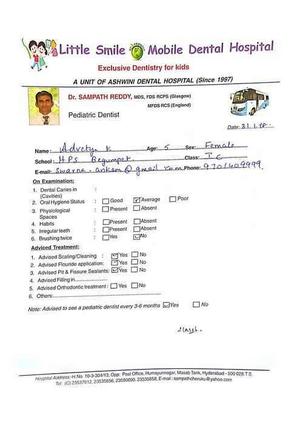 Little Smile Mobile Dental Hospital
Exclusive Dentistry for kids
A UNIT OF ASHWINI DENTAL HOSPITAL (Since 1997)
Dr. SAMPATH REDDY, MDS, FDS RCPS (Glasgow)
MFDS RCS (England)
Pediatric Dentist
Date:
Name: Age: 5 Sex: Female
School: HPS Begumpet Class: I C
E-mail: Phone: 9701409999
On Examination:
1. Dental Caries in :
(Cavities)
2. Oral Hygiene Status : Good Average Poor
3. Physiological : Present Absent
Spaces
4. Habits : Present Absent
5. Irregular teeth : Present Absent
6. Brushing twice : Yes No
Advised Treatment:
1. Advised Scaling/Cleaning : Yes No
2. Advised Flouride application: Yes No
3. Advised Pit & Fissure Sealants: Yes No
4. Advised Filling in
5. Advised Orthodontic treatment : Yes No
6. Others:
Note: Advised to see a pediatric dentist every 3-6 months Yes No
Hospital Address: H.No. 10-3-304/13, Opp. Post Office, Humayunagar, Masab Tank, Hyderabad - 500 028 T.S.